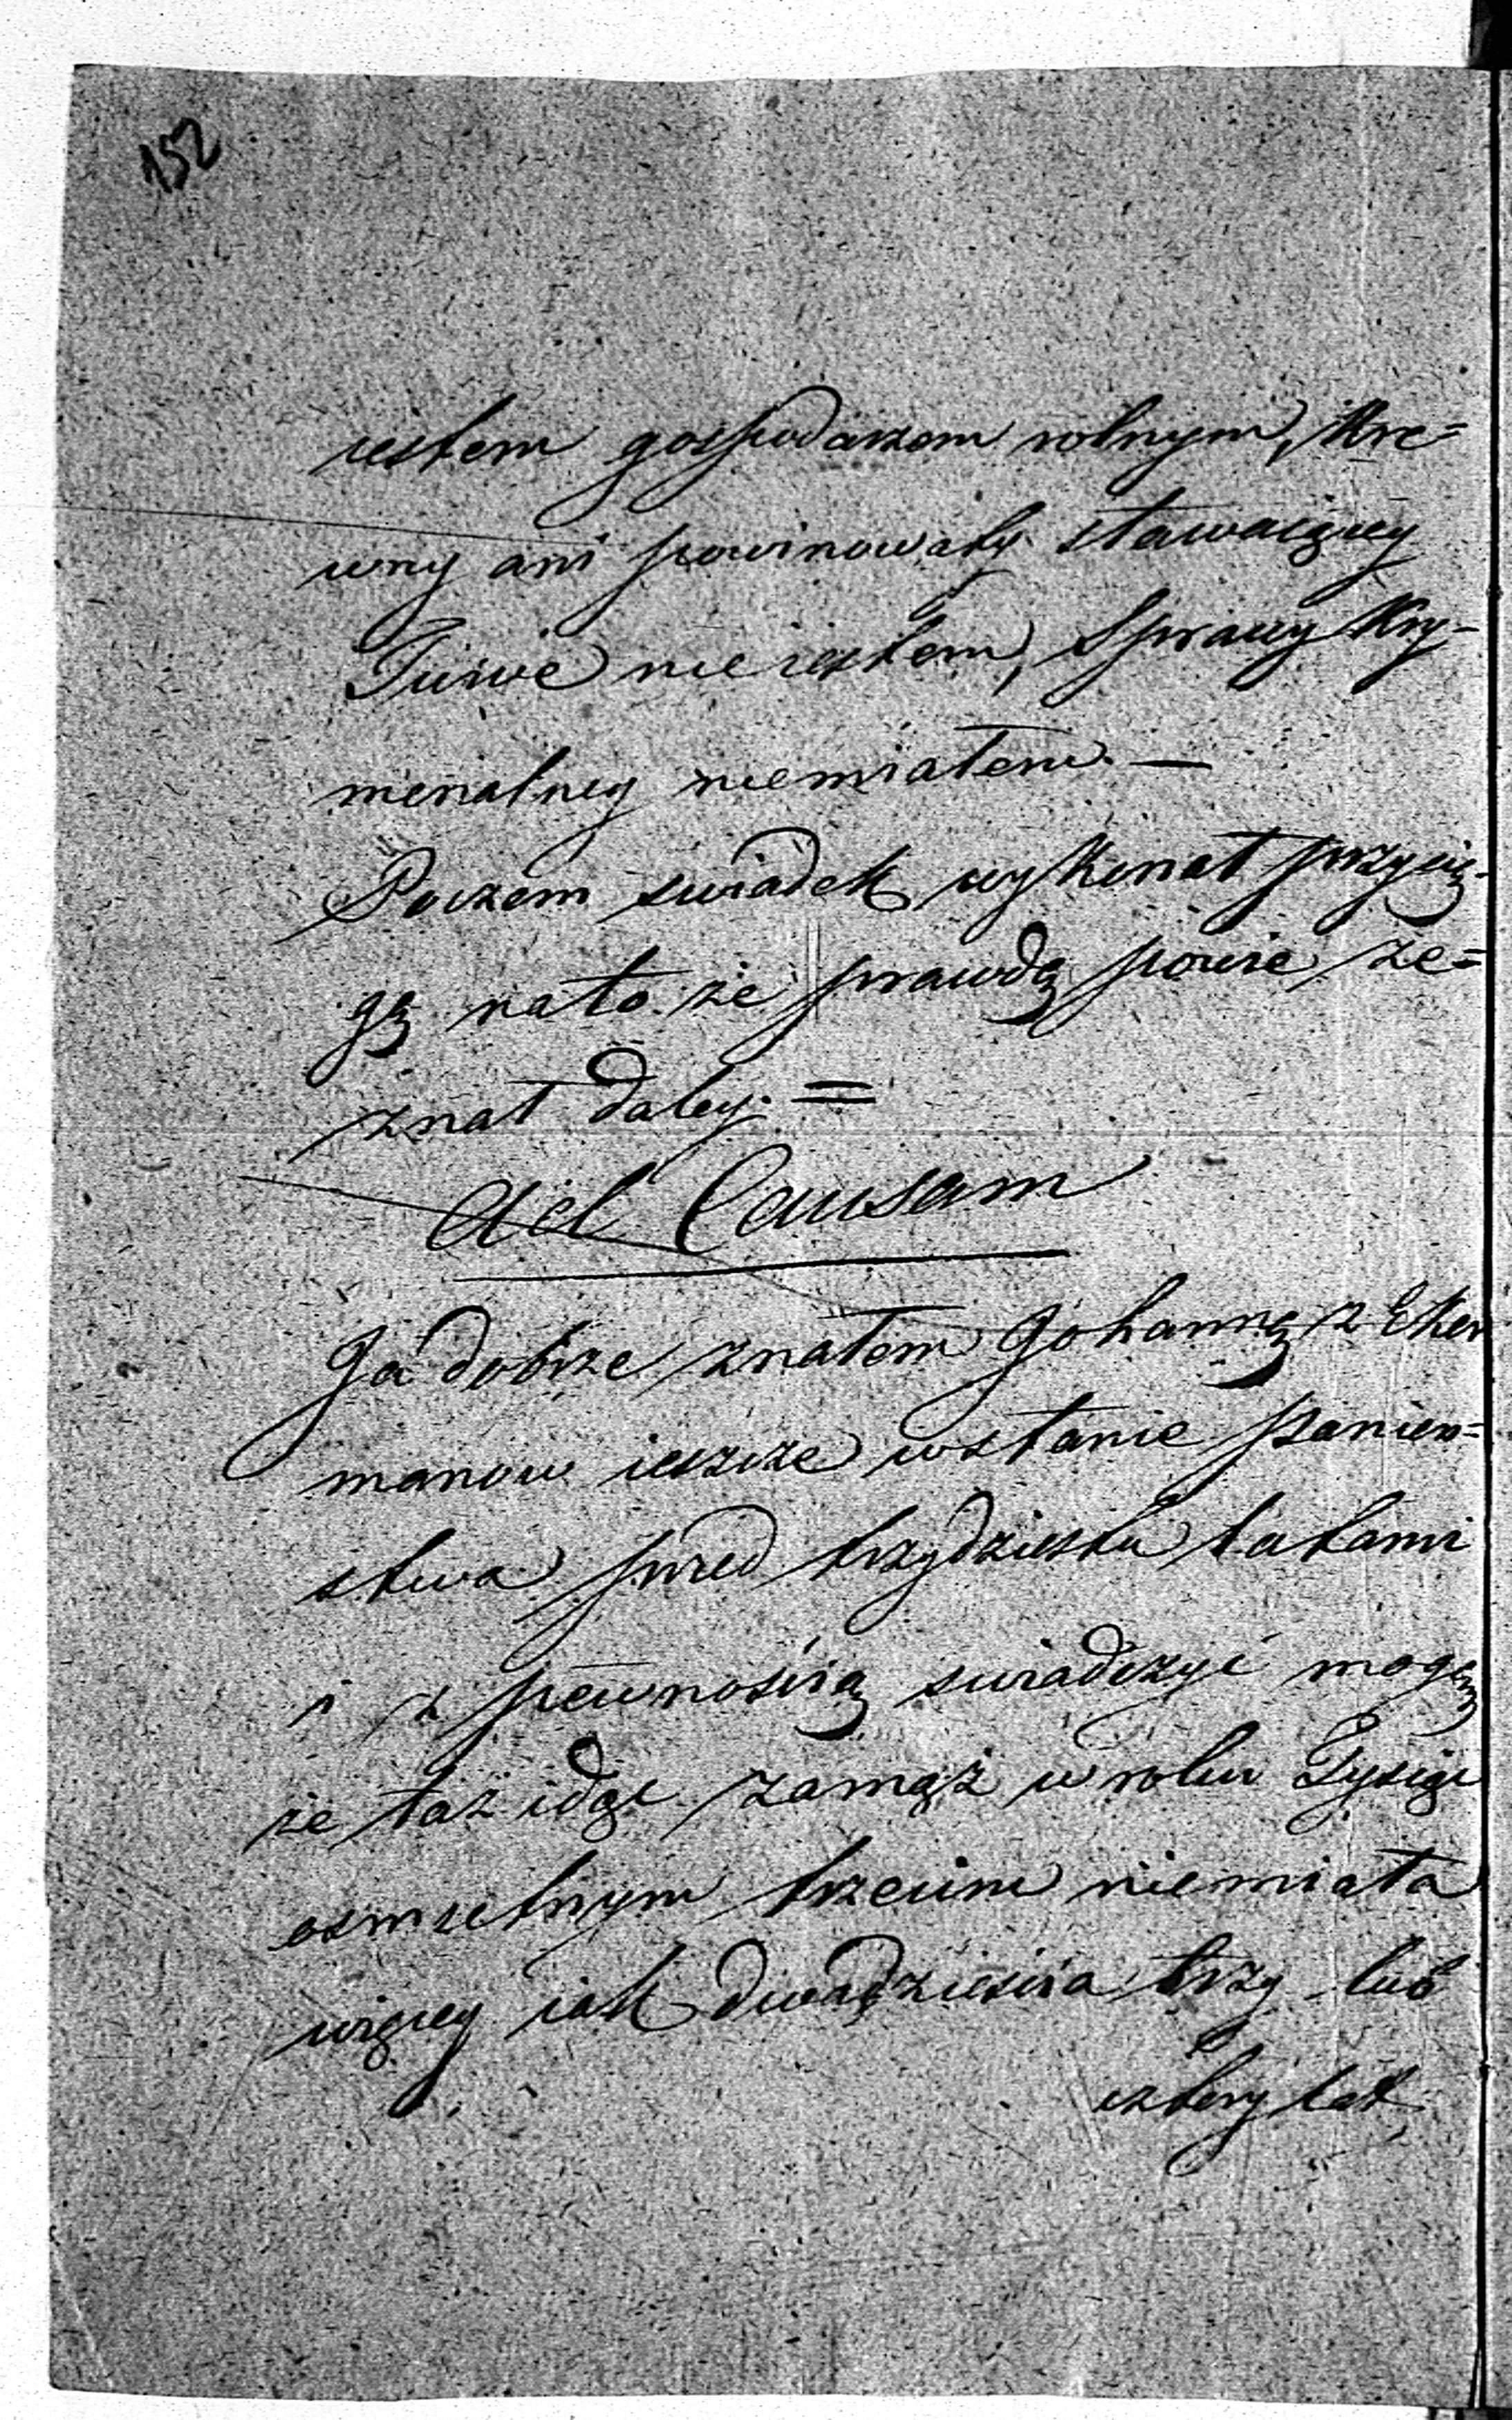 152
iestem gospodarzem rolnym, kre=
wny ani powinowaty stawaiącey
nie iestem, sprawy kry-
menalney niemiałem. —
Poczem swiadek wykonał przysię-
gą na to że prawdą powie ze=
znał daley. =
Ad Causam
Ja dobrze znałem Johannę z Eker
manow ieszcze w stanie panien=
stwa przed trzydziestu latami
i z pewnoscią swiadczyć mogę
że taż idąc zamąż w roku Tysiąc
osmsetnym trzecim niemiała
więcey iak dwadziescia trzy lub
cztery lat